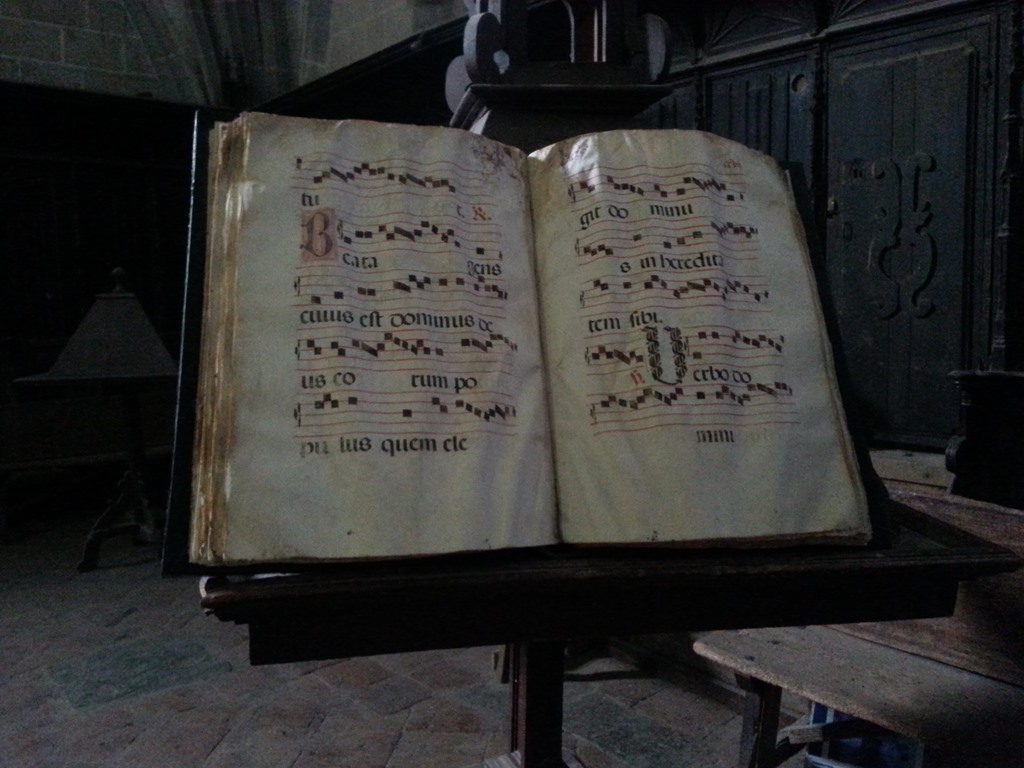 tu ℟.
Beata gens
cuius est dominus de
us eo rum po
pu lus quem ele
git do minu
s in heredita
tem sibi.
℣. Verbo do
mini